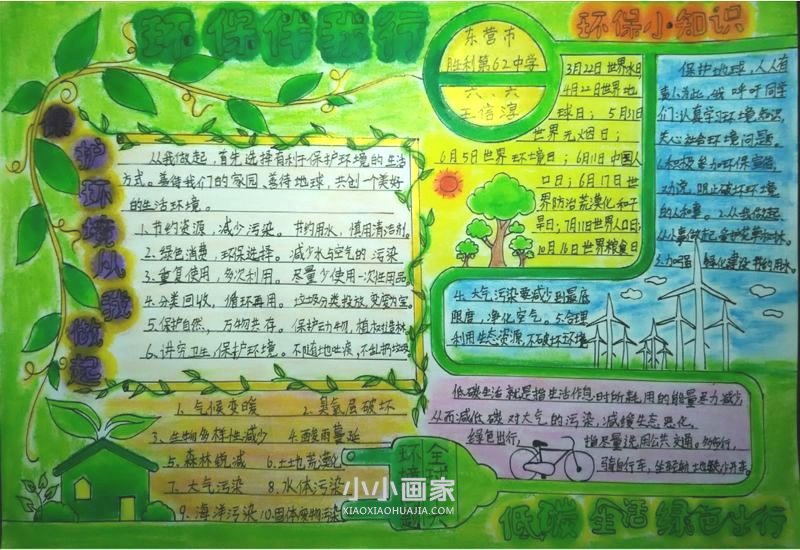 环保伴我行
东营市
胜利第62中学
六、六
王信淳
环保小知识
保护环境从我做起
从我做起,首先选择有利于保护环境的生活
方式。善待我们的家园、善待地球,共创一个美好
的生活环境。
1.节约资源,减少污染。节约用水,慎用清洁剂。
2.绿色消费,环保选择。减少水与空气的污染
3.重复使用,多次利用。尽量少使用一次性用品
4.分类回收,循环再用。垃圾分类投放,变废为宝。
5.保护自然,万物共存。保护动物,植树造林
6.讲究卫生,保护环境。不随地吐痰,不乱扔垃圾
3月22日世界水日
4月22日世界地
球日;5月31日
世界无烟日;
6月5日世界环境日;6月11日中国人
口日;6月17日世
界防治荒漠化和干
旱日;7月11日世界人口日;
10月16日世界粮食日
保护地球,人人有
责。为此,我呼吁同学
们:认真学习环境知识,
关心社会环境问题。
1.积极参加环保宣传
动员,阻止破坏环境
的人和事。2.从我做起,
从小事做起,
3.加强绿化建设 节约用水。
4.大气污染要减少到最底
限度,净化空气。5.合理
利用生态资源,不破坏环境
低碳生活就是指生活作息时所耗用的能量尽力减少
从而减低碳对大气的污染,减缓生态恶化。
绿色出行,指尽量选用公共交通。
骑自行车,坐轻轨地铁少开车。
1.气候变暖 2.臭氧层破坏
3.生物多样性减少 4.酸雨蔓延
5.森林锐减 6.土地荒漠化
7.大气污染 8.水体污染
9.海洋污染 10.固体废物污染
全球
环境
小小画家
XIAOXIAOHUAJIA.COM
低碳生活绿色出行